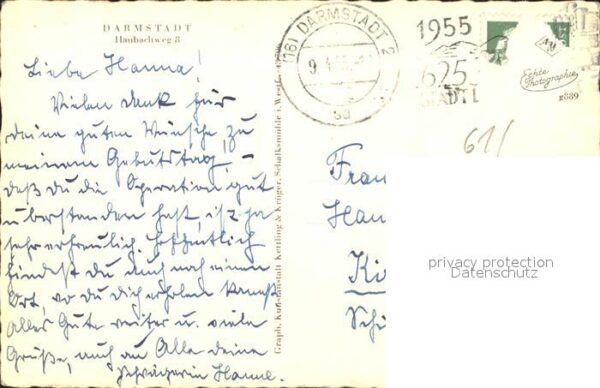 DARMSTADT
Haubachweg 8
Liebe Hanna!
Vielen Dank für
deine guten Wünsche zu
meinem Geburtstag, –
daß du die Operation gut
überstanden hast, ist ja
sehr erfreulich. Hoffentlich
findest du auch noch einen
Ort, wo du dich erholen kannst
Alles Gute weiter u. viele
Grüße, auch an Alle deine
Schwägerin Hanne.
Graph. Kunstanstalt Kettling & Krüger, Schalksmühle i. Westf.
(16) DARMSTADT 2
1955
625
STÄDTL
Echte
Photographie
g889
61/
Frau
Han
Ki
Sch
privacy protection
Datenschutz